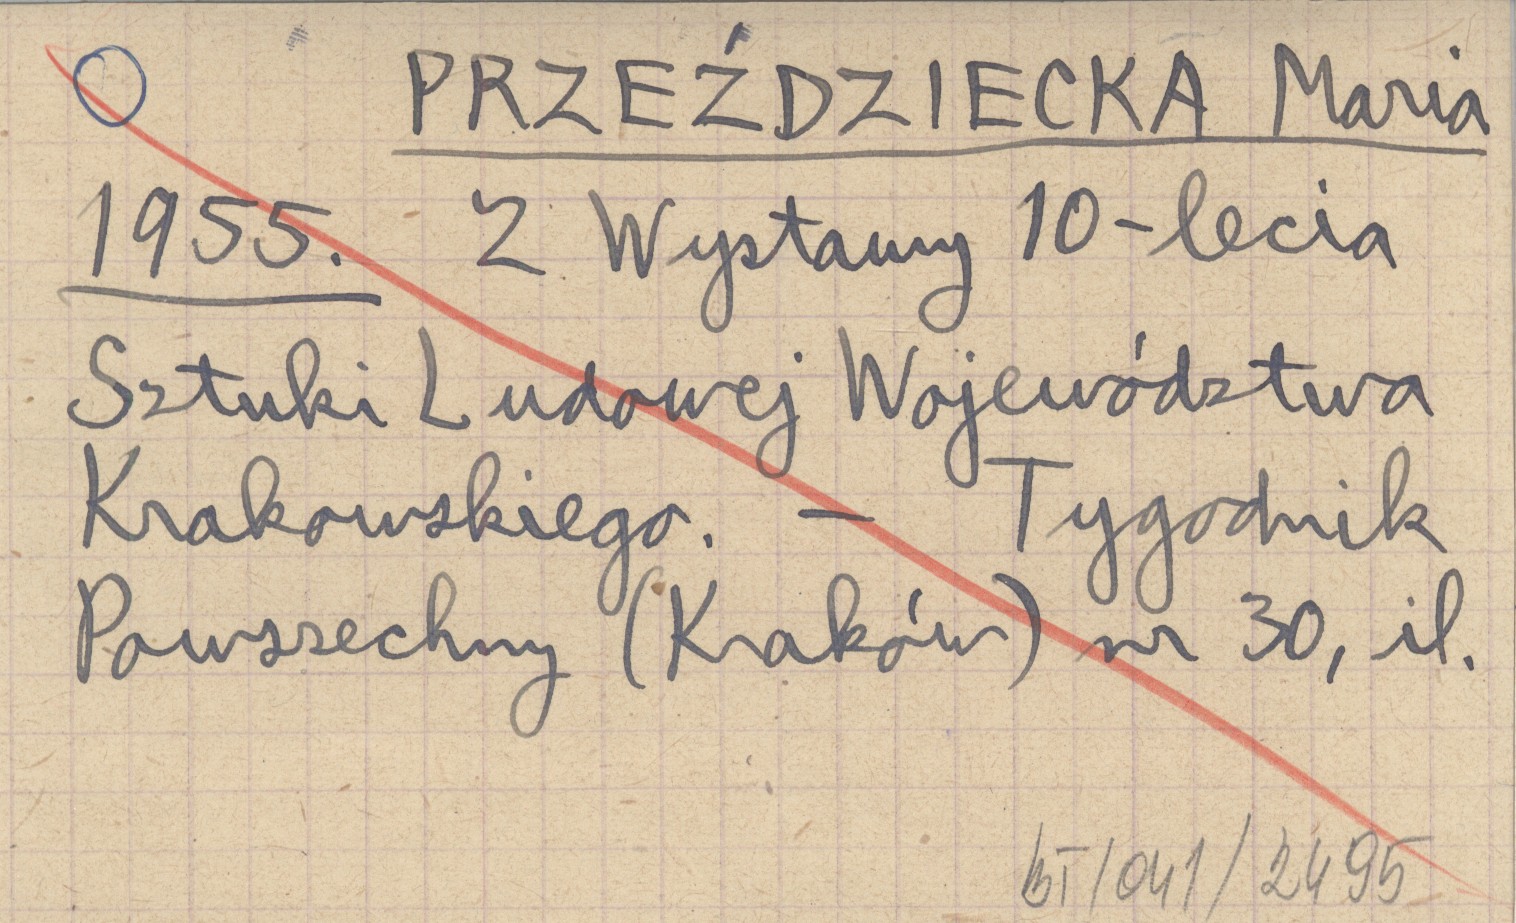 PRZEŹDZIECKA Maria
1955. Z Wystawy 10-lecia
Sztuki Ludowej Województwa
Krakowskiego. – Tygodnik
Powszechny (Kraków) nr 30, il.
BT/041/2495